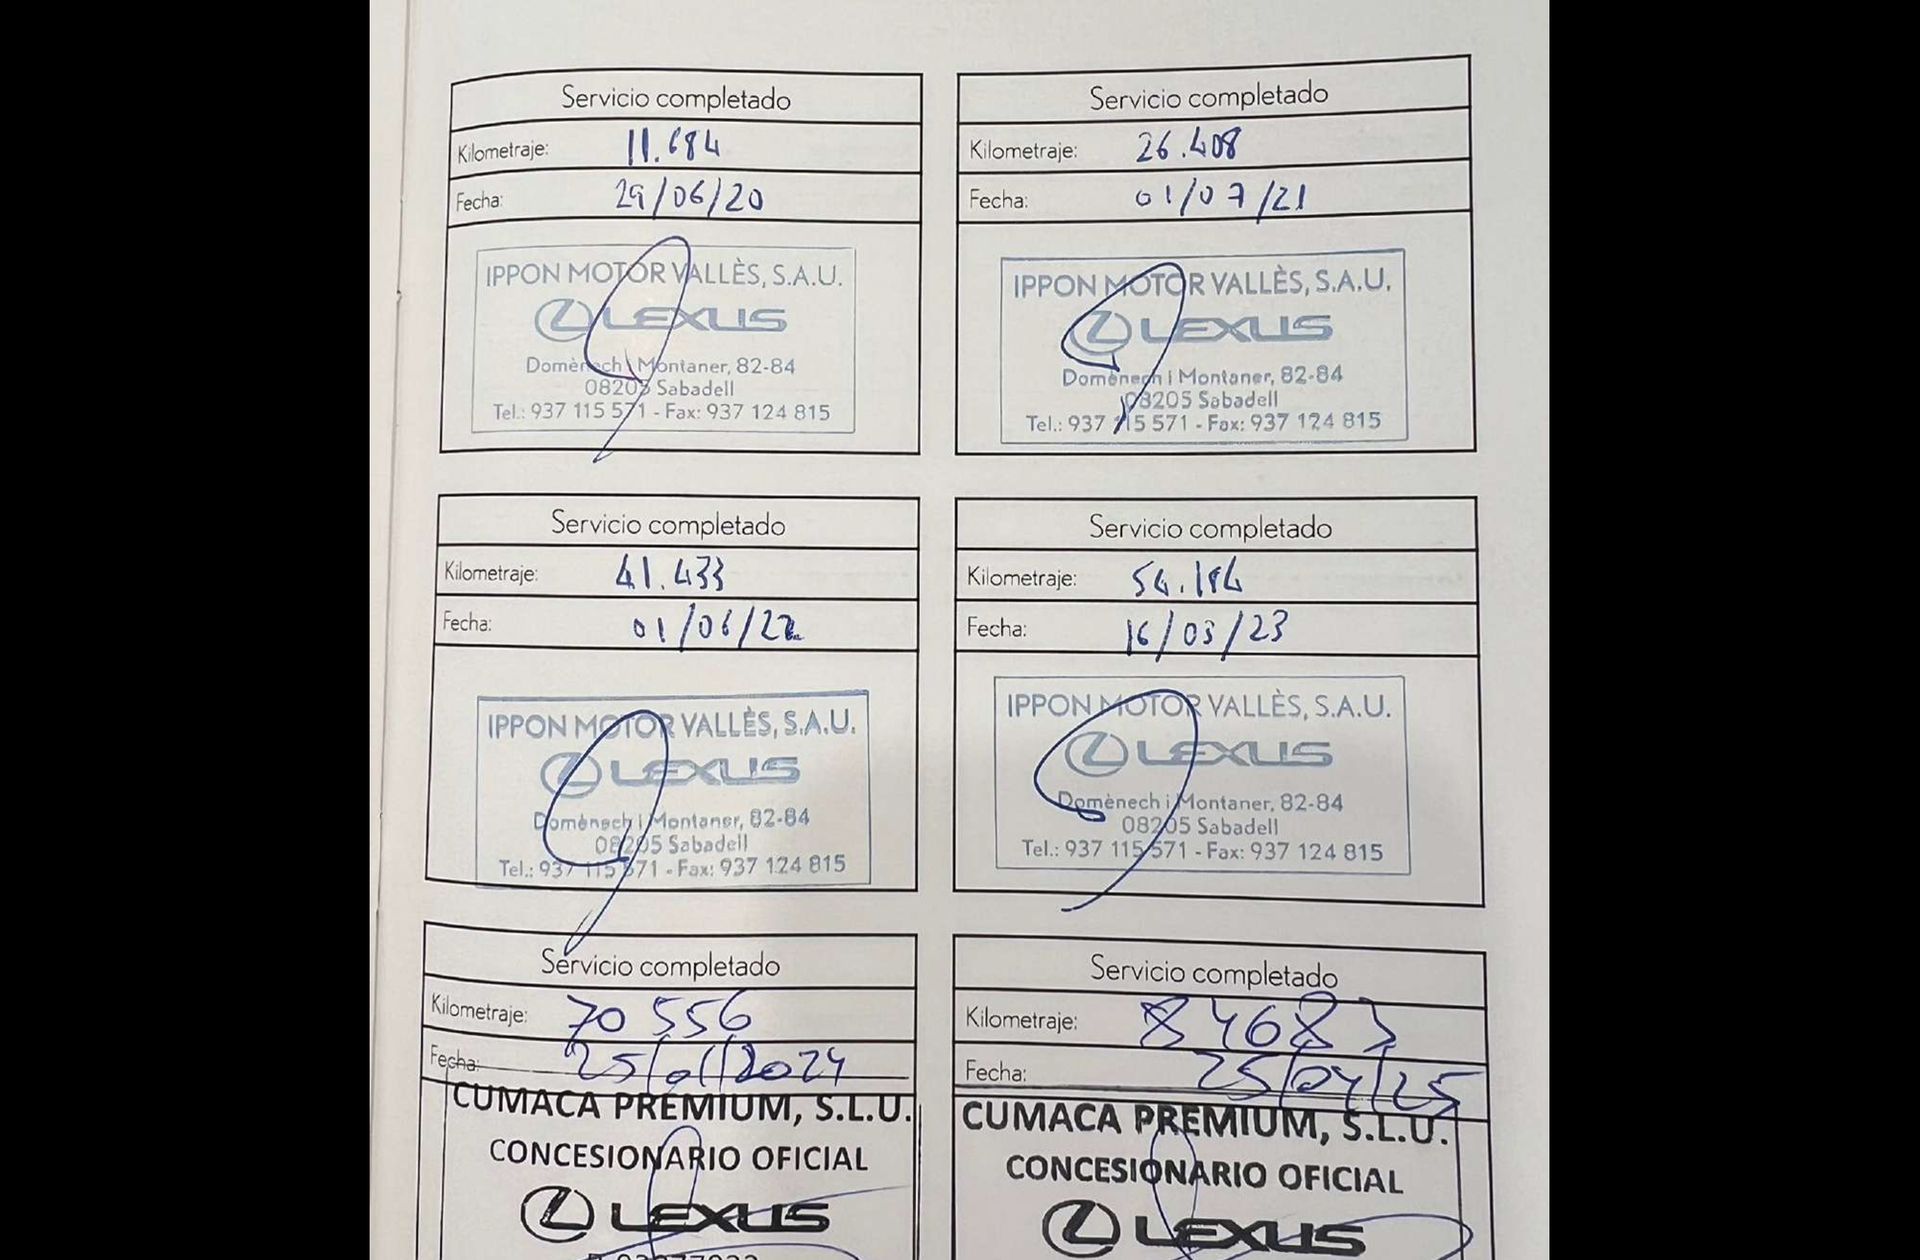 Servicio completado
Kilometraje: 11.684
Fecha: 29/06/20
IPPON MOTOR VALLÈS, S.A.U.
LEXUS
Domènech i Montaner, 82-84
08205 Sabadell
Tel.: 937 115 571 - Fax: 937 124 815
Servicio completado
Kilometraje: 26.408
Fecha: 01/07/21
IPPON MOTOR VALLÈS, S.A.U.
LEXUS
Domènech i Montaner, 82-84
08205 Sabadell
Tel.: 937 115 571 - Fax: 937 124 815
Servicio completado
Kilometraje: 41.433
Fecha: 01/06/22
IPPON MOTOR VALLÈS, S.A.U.
LEXUS
Domènech i Montaner, 82-84
08205 Sabadell
Tel.: 937 115 571 - Fax: 937 124 815
Servicio completado
Kilometraje: 54.194
Fecha: 16/03/23
IPPON MOTOR VALLÈS, S.A.U.
LEXUS
Domènech i Montaner, 82-84
08205 Sabadell
Tel.: 937 115 571 - Fax: 937 124 815
Servicio completado
Kilometraje: 70 556
Fecha: 25/01/2024
CUMACA PREMIUM, S.L.U.
CONCESIONARIO OFICIAL
LEXUS
Servicio completado
Kilometraje: 84683
Fecha: 25/04/25
CUMACA PREMIUM, S.L.U.
CONCESIONARIO OFICIAL
LEXUS